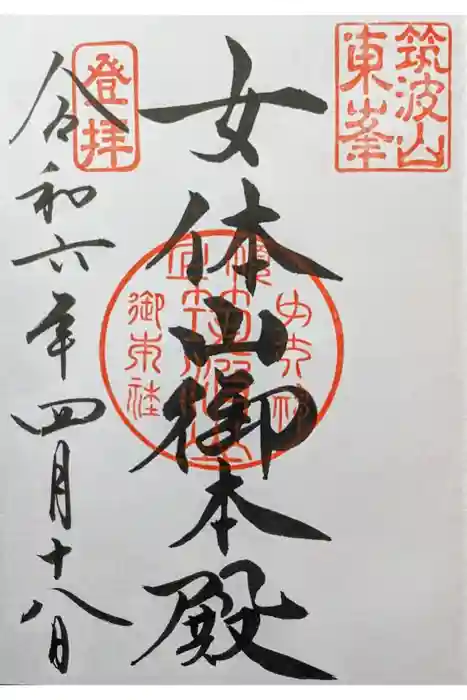 筑波山
東峯
女体山御本殿
登拝
令和六年四月十八日